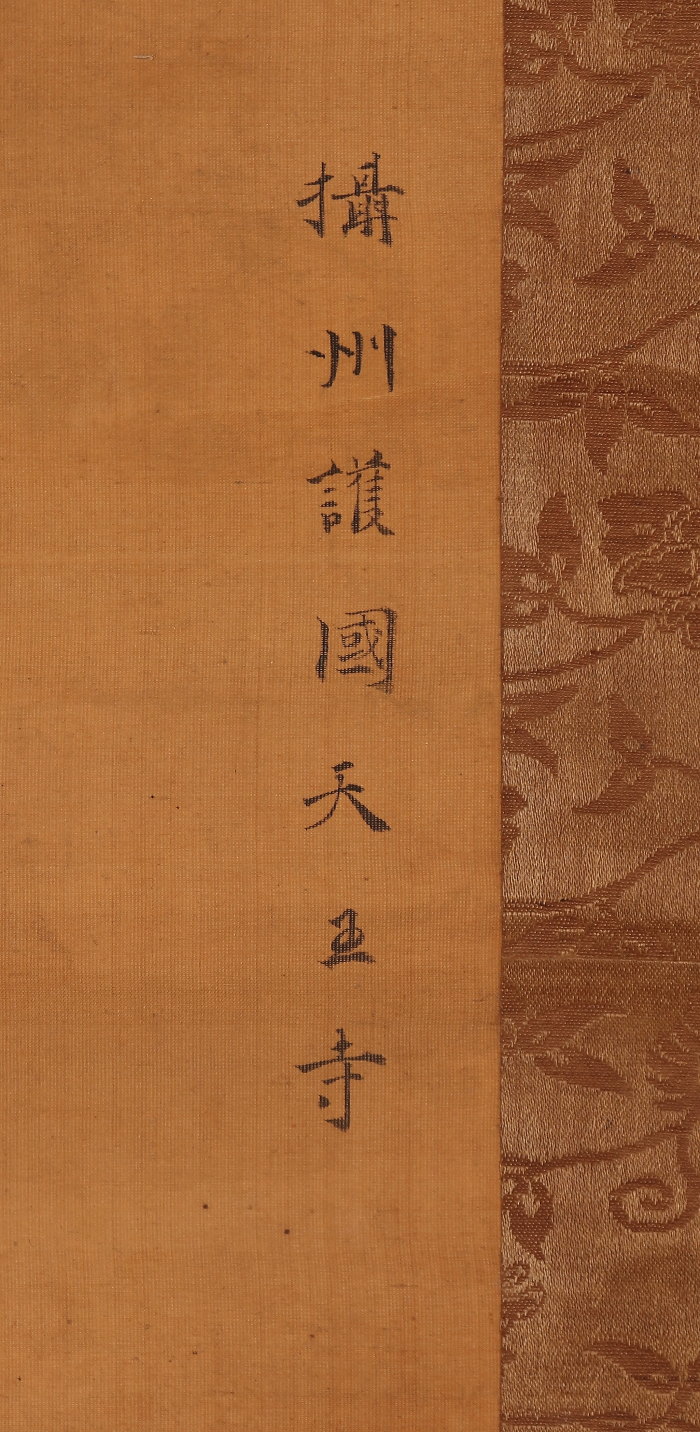 攝州護國天王寺